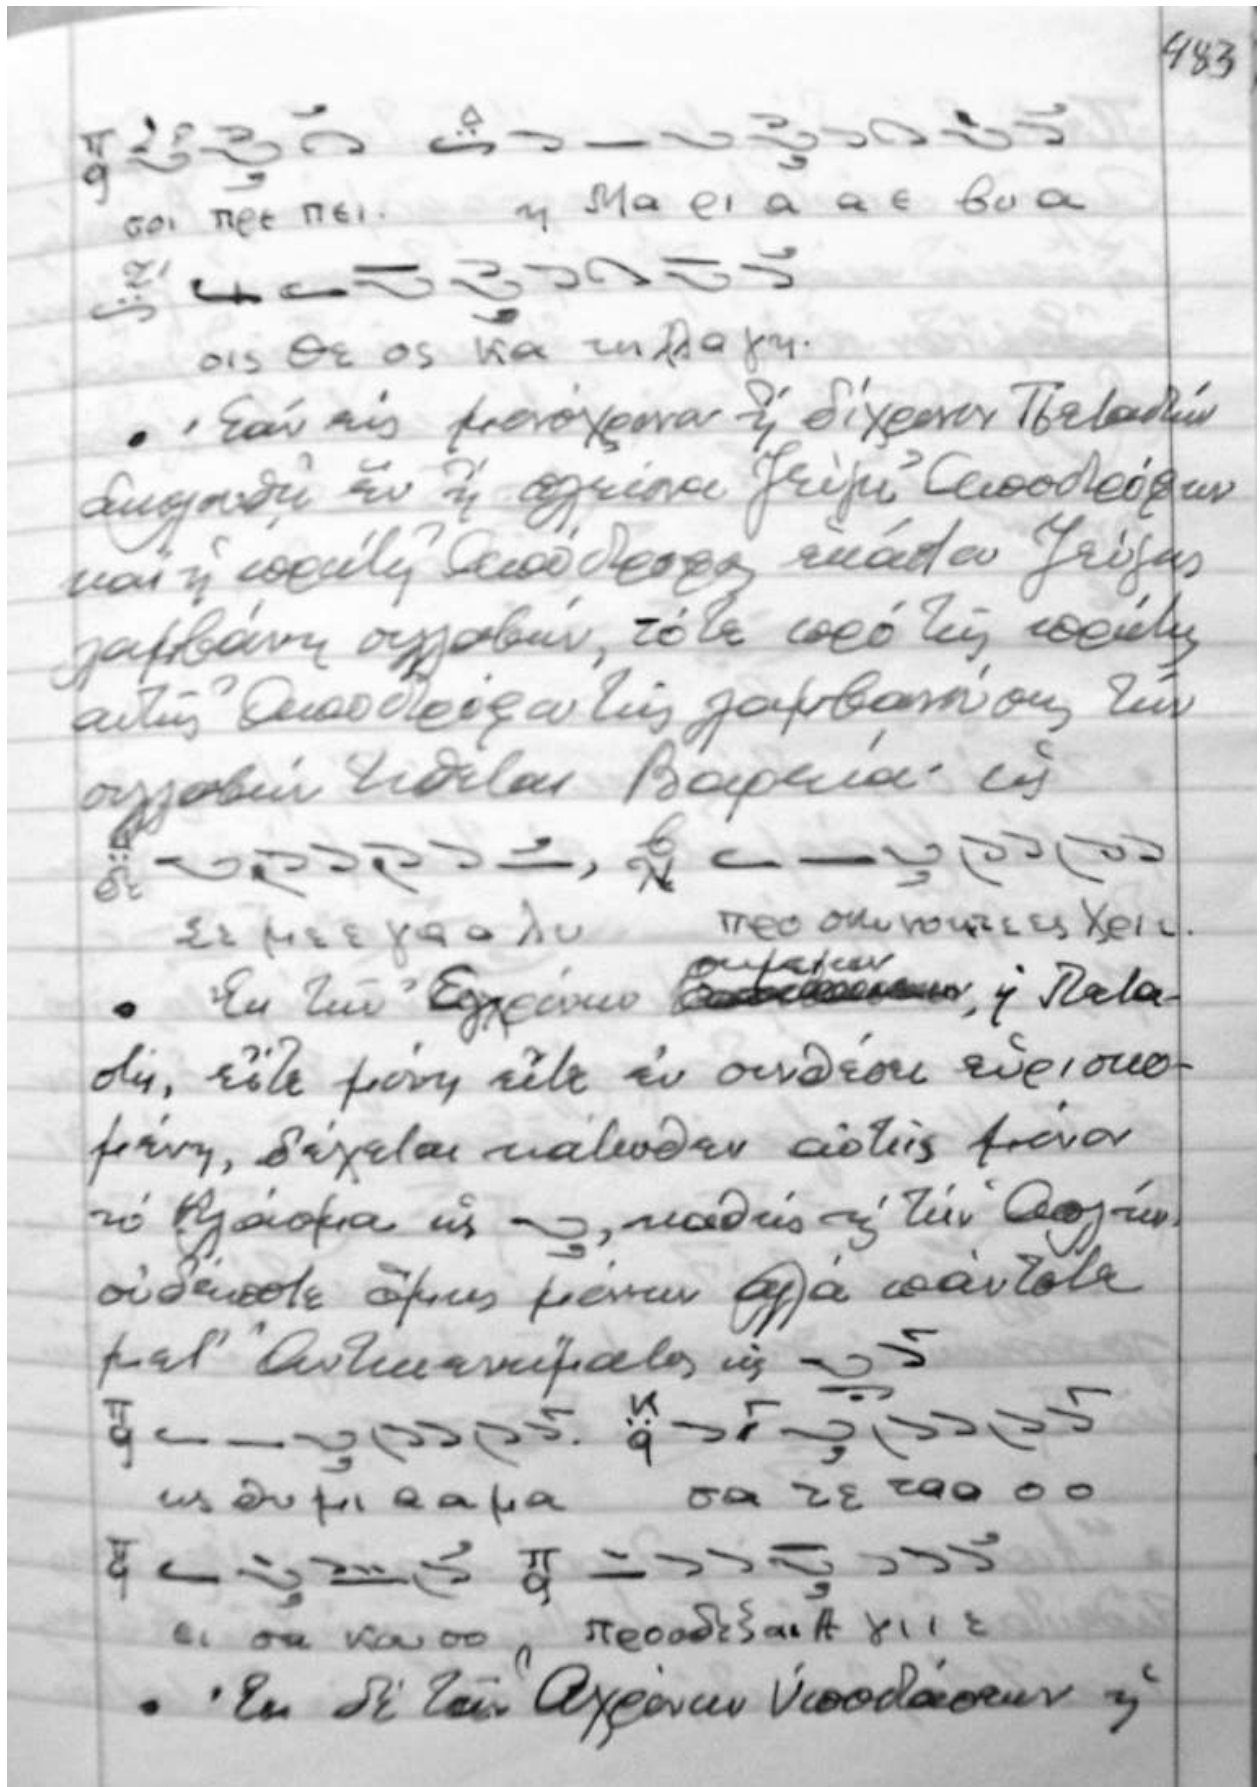 483
σοι πρε πει. η Μα ρι α α ε βυ α
οις Θε ος κα τηλλα γη.
• Ἐάν εἰς μονόχρονον ἤ δίχρονον Πεταστήν
ἀκολουθῇ ἕν ἤ πλείονα ζεύγη Ἀποστρόφων
καί ἡ πρώτη Ἀπόστροφος ἑκάστου ζεύγους
λαμβάνῃ συλλαβήν, τότε πρό τῆς πρώτης
αὐτῆς Ἀποστρόφου τῆς λαμβανούσης τήν
συλλαβήν τίθεται Βαρεῖα· ὡς
Σε με ε γα α λυ προ σκυνουντε ες Χρι ι.
• Ἐκ τῶν Ἐγχρόνων σημείων, ἡ Πετα-
στή, εἴτε μόνη εἴτε ἐν συνθέσει εὑρισκο-
μένη, δέχεται κάτωθεν αὐτῆς μόνον
τό Κλάσμα ὡς , καθώς ἤ τήν Ἁπλῆν,
οὐδέποτε ὅμως μόνην ἀλλά πάντοτε
μετ' Ἀντικενώματος ὡς
ως θυ μι α α μα σα τε ταα ο ο
ει σα κου σο , προσδεξαι Α γι ι ε
• Ἐκ δέ τῶν Ἀχρόνων Ὑποστάσεων ἡ